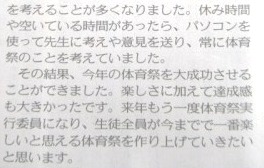 を考えることが多くなりました。休み時間
や空いている時間があったら、パソコンを
使って先生に考えや意見を送り、常に体育
祭のことを考えていました。
　その結果、今年の体育祭を大成功させる
ことができました。楽しさに加えて達成感
も大きかったです。来年もう一度体育祭実
行委員になり、生徒全員が今までで一番楽
しいと思える体育祭を作り上げていきたい
と思います。